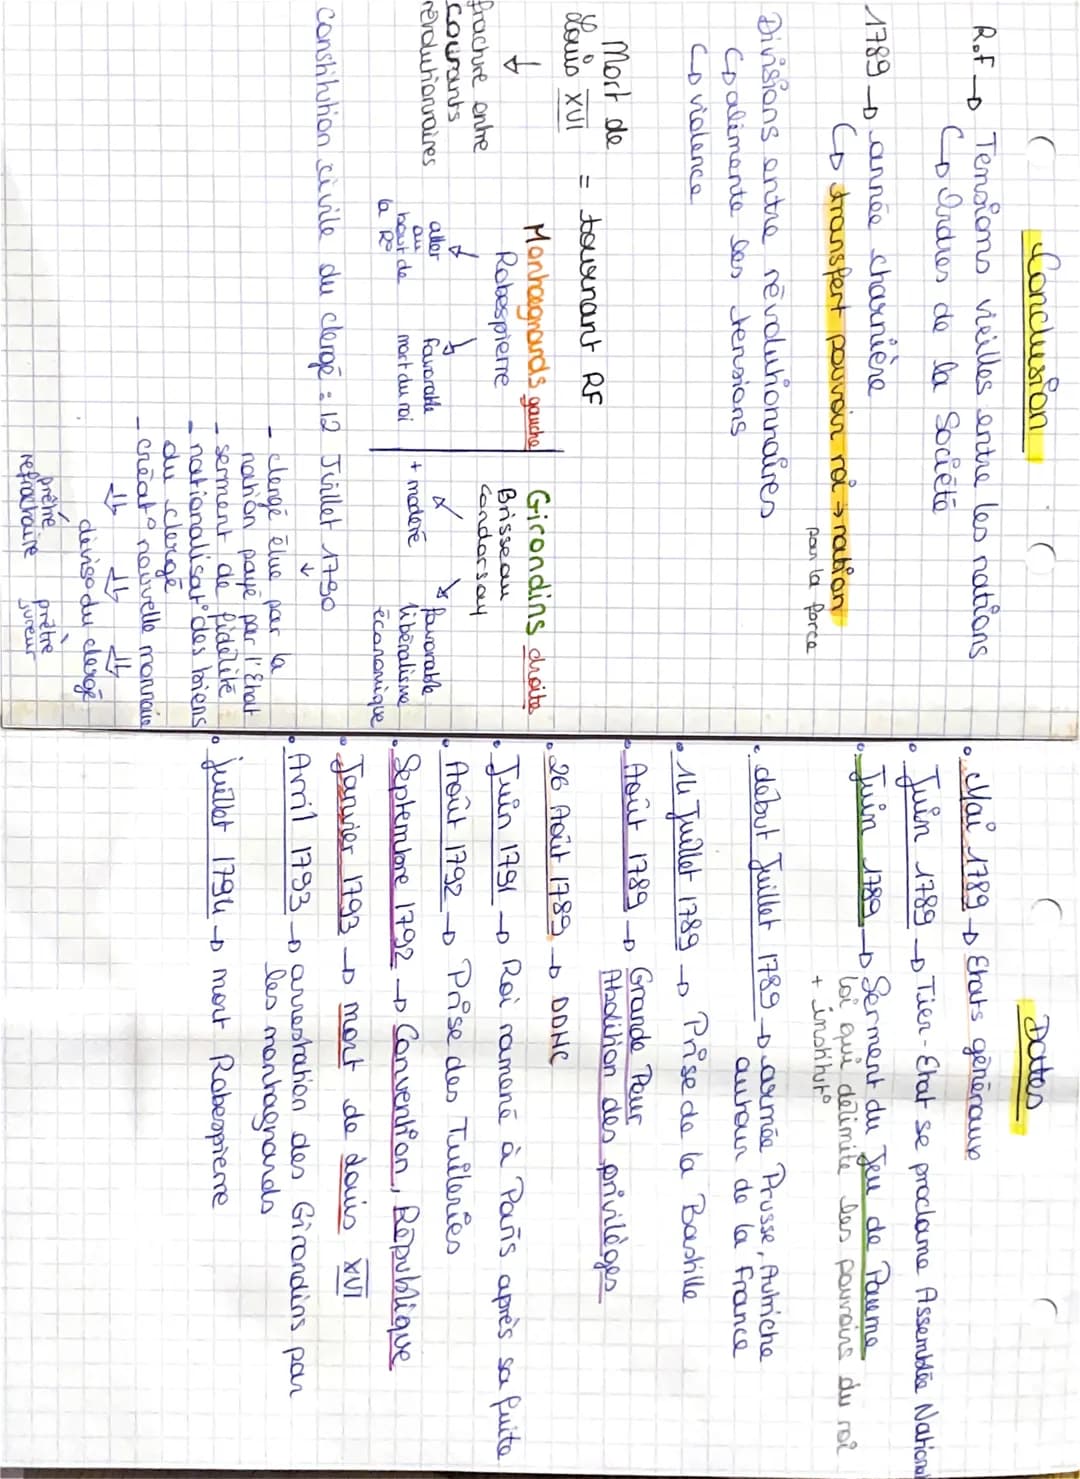 Conclusion
R.F → Tensions vieilles entre les nations
↳ Ordres de la Société
1789 → année charnière
↳ transfert pouvoir roi → nation
par la force
Divisions entre révolutionnaires
↳ alimente les tensions
↳ violence
Mort de Louis XVI = tournant RF
↓
fracture entre
courants
révolutionnaires
Montagnards gauche
Robespierre
aller au bout de la R°
favorable mort du roi
Girondins droite
Brisseau
Condorsay
+ modéré
favorable libéralisme économique
constitution civile du clergé : 12 Juillet 1790
↓
- clergé élue par la
nation payé par l'Etat
- serment de fidélité
- nationalisat° des biens
du clergé
- créat° nouvelle monnaie
⇓ ⇓ ⇓
diviso du clergé
prêtre refractaire
prêtre jureur
Dates
• Mai 1789 → Etats généraux
• Juin 1789 → Tier-Etat se proclame Assemblée Nationa
• Juin 1789 → Serment du Jeu de Paume
loi qui délimite les pouvoirs du roi
+ institut°
• début Juillet 1789 → armée Prusse, Autriche
autour de la France
• 14 Juillet 1789 → Prise de la Bastille
• Août 1789 → Grande Peur
Abolition des privilèges
• 26 Août 1789 → DDHC
• Juin 1791 → Roi ramené à Paris après sa fuite
• Août 1792 → Prise des Tuileries
• Septembre 1792 → Convention, République
• Janvier 1793 → mort de Louis XVI
• Avril 1793 → arrestation des Girondins par
les montagnards
• juillet 1794 → mort Robespierre